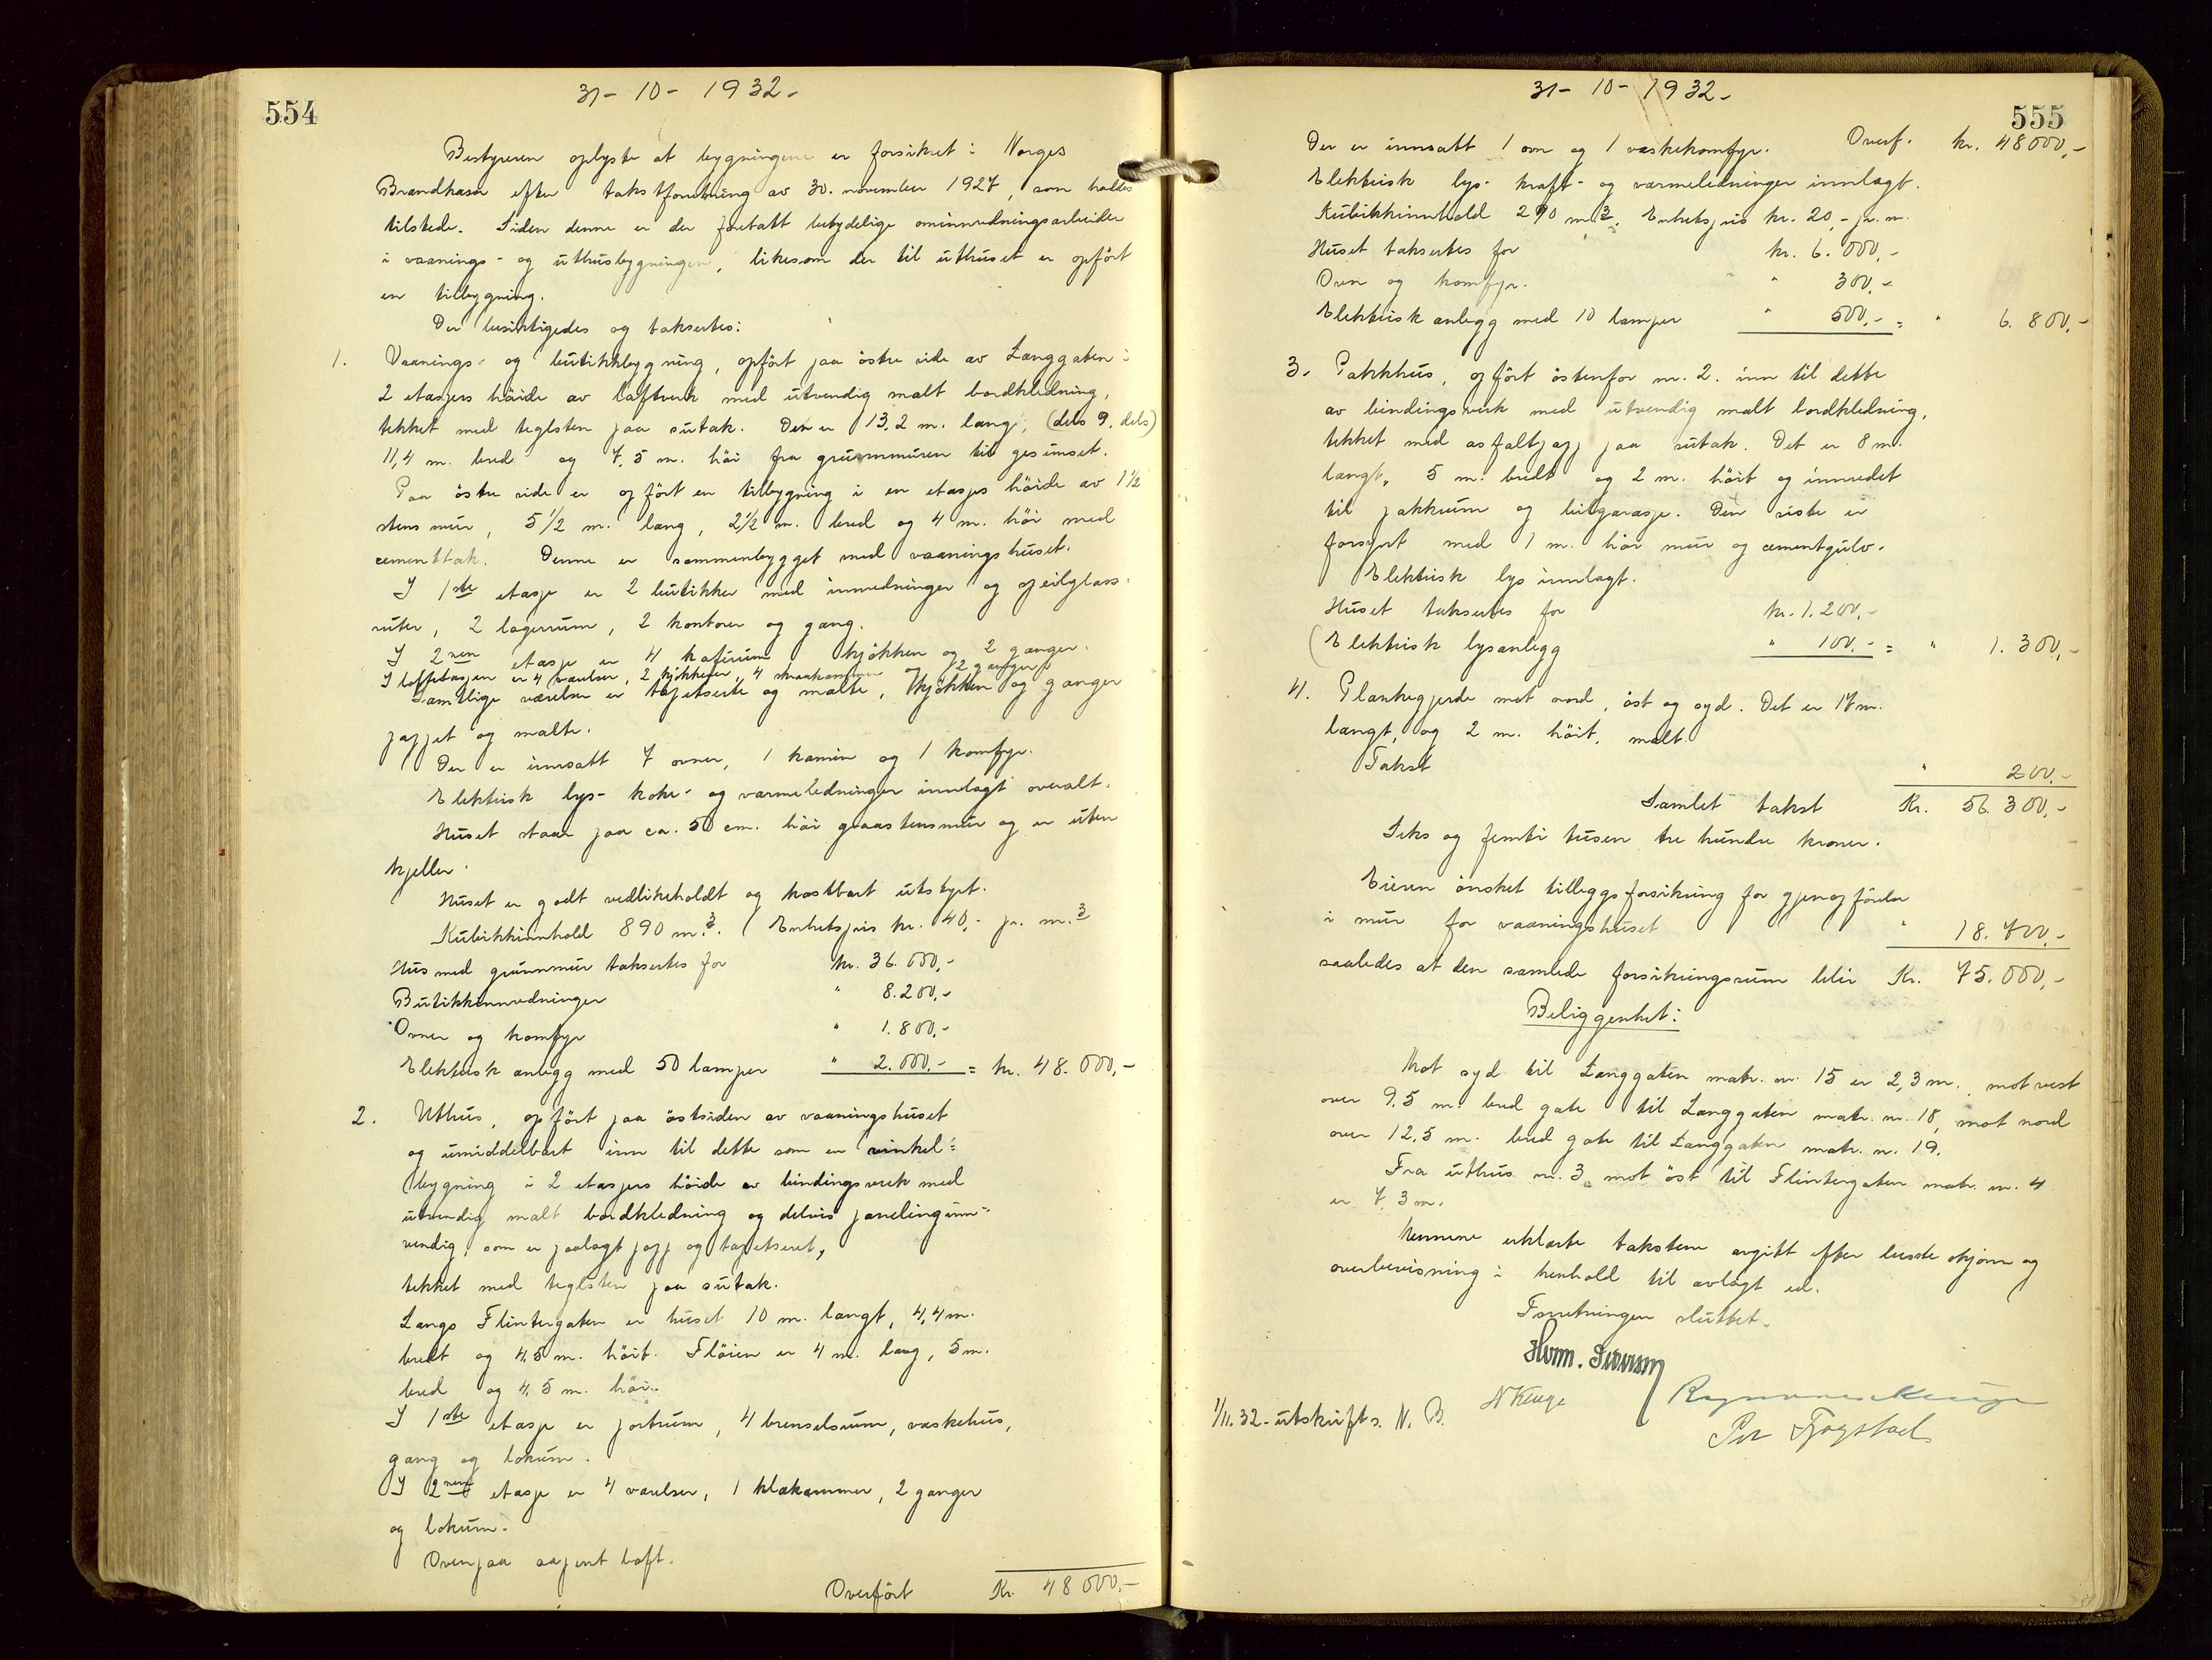 554
31 - 10 - 1932 -
Bestyreren oplyste at bygningene er forsikret i Norges
Brandkasse efter takstforretning av 30. november 1927, som holdes
tilstede. Siden denne er der foretatt betydelige ominnredningsarbeider
i vaanings- og uthusbygningen, likesom der til uthuset er opført
en tilbygning.
Der besiktigedes og taksertes:
1. Vaanings- og butikkbygning, opført paa østre side av Langgaten i
2 etasjers høide av laftverk med utvendig malt bordkledning,
tekket med teglsten paa sutak. Den er 13.2 m. lang, (dels 9, dels)
11,4 m. bred og 7,5 m. høi fra grunnmuren til gesimset.
Paa østre side er opført en tilbygning i en etasjes høide av 1 1/2
stens mur, 5 1/2 m. lang, 2 1/2 m. bred og 4 m. høi med
cementtak. Denne er sammenbygget med vaaningshuset.
I 1ste etasje er 2 butikker med innredninger og speilglass-
ruter, 2 lagerrum, 2 kontorer og gang.
I 2nen etasje er 4 kaferum, kjøkken og 2 ganger.
I loftetasjen er 4 værelser, 2 kjøkkener, 4 skraakammer og 2 ganger.
Samtlige værelser er tapetserte og malte, kjøkken og ganger
pappet og malte.
Der er innsatt 7 ovner, 1 kamin og 1 komfyr.
Elektrisk lys- koke- og varmeledninger innlagt overalt.
Huset staar paa ca. 50 cm. høi graastensmur og er uten
kjeller.
Huset er godt vedlikeholdt og kostbart utstyrt.
Kubikkinnhold 890 m.3. Enhetspris kr. 40,- pr. m.3
Hus med grunnmur taksertes for kr. 36.000,-
Butikkinnredninger " 8.200,-
Ovner og komfyr " 1.800,-
Elektrisk anlegg med 50 lamper " 2.000,- = kr. 48.000,-
2. Uthus, opført paa østsiden av vaaningshuset
og umiddelbart inn til dette som en vinkel-
bygning i 2 etasjers høide av bindingsverk med
utvendig malt bordkledning og delvis paneling inn-
vendig, som er paalagt papp og tapetseret,
tekket med teglsten paa sutak.
Langs Flintergaten er huset 10 m. langt, 4,4 m.
bredt og 4,5 m. høit. Fløien er 4 m. lang, 5 m.
bred og 4,5 m. høi.
I 1ste etasje er portrum, 4 brenselsrum, vaskehus,
gang og lokum.
I 2nen etasje er 4 værelser, 1 klækammer, 2 ganger
og lokum.
Ovenpaa aapent loft.
Overført Kr. 48000,-
31 - 10 - 1932 -
555
Overf. kr. 48000,-
Der er innsatt 1 ovn og 1 vaskekomfyr.
Elektrisk lys- kraft- og varmeledninger innlagt.
Kubikkinnhold 290 m.3. Enhetspris kr. 20,- pr. m.
Huset taksertes for kr. 6.000,-
Ovn og komfyr. " 300,-
Elektrisk anlegg med 10 lamper " 500,- = " 6.800,-
3. Pakkhus, opført østenfor nr. 2. inn til dette
av bindingsverk med utvendig malt bordkledning,
tekket med asfaltpapp paa sutak. Det er 8 m.
langt, 5 m. bredt og 2 m. høit og innredet
til pakkrum og bilgarasje. Den siste er
forsynt med 1 m. høi mur og cementgulv.
Elektrisk lys innlagt.
Huset taksertes for kr. 1.200,-
Elektrisk lysanlegg " 100,- = " 1.300,-
4. Plankegjerde mot nord, øst og syd. Det er 17 m.
langt, og 2 m. høit, malt.
Takst " 200,-
Samlet takst Kr. 56.300,-
Seks og femti tusen tre hundre kroner.
Eieren ønsket tilleggsforsikring for gjenopførelse
i mur for vaaningshuset " 18.700,-
saaledes at den samlede forsikringssum blir Kr. 75.000,-
Beliggenhet:
Mot syd til Langgaten matr. nr. 15 er 2,3 m., mot vest
over 9.5 m. bred gate til Langgaten matr. nr. 18, mot nord
over 12,5 m. bred gate til Langgaten matr. nr. 19.
Fra uthus nr. 3 mot øst til Flintergaten matr. nr. 4
er 7,3 m.
Mennene erklærte taksten avgitt efter beste skjønn og
overbevisning i henhold til avlagt ed.
Forretningen sluttet.
Herm. Iversen
N Kluge
Per Tjøgstad
1/11.32 - utskrift s. N. B.